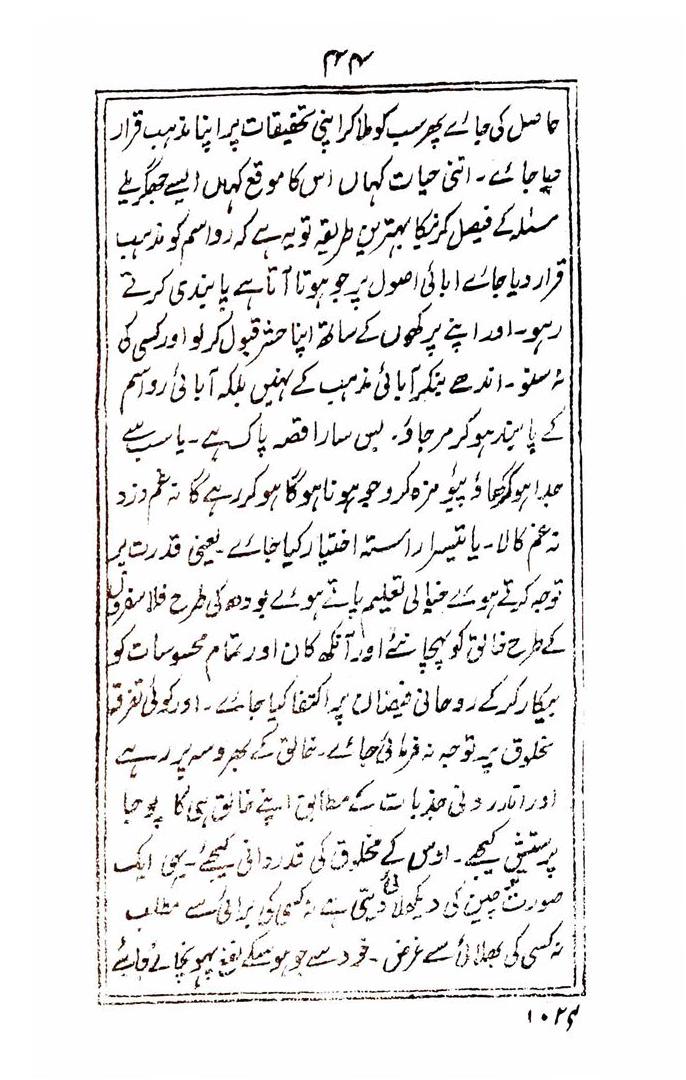 ۴۲۴
حاصل کی جاے پھر سب کو ملا کر اپنی تحقیقات پر اپنا مذہب قرار
دیا جاے ۔ اتنی حیات کہاں اس کا موقع کہاں ایسے جھگڑیلے
مسئلہ کے فیصل کرنیکا بہترین طریقہ تو یہ ہے کہ رواسم کو مذہب
قرار دیا جاے ابائی اصول پر جو ہوتا آتا ہے پابندی کرتے
رہو۔ اور اپنے پرکھوں کے ساتھ اپنا حشر قبول کر لو اور کسی کی
نہ سنو ۔ اندھے بنکر آبائی مذہب کے نہیں بلکہ آبائی رواسم
کے پابند ہو کر مر جاؤ۔ بس سارا قصہ پاک ہے ۔ یا سب سے
جدا ہو کر کھاؤ پیؤ مزہ کرو جو ہونا ہو گا ہو کر رہے گا نہ غم دزد
نہ غم کالا ۔ یا تیسرا راستہ اختیار کیا جاے ۔ یعنی قدرت پر
توجہ کرتے ہوے خیالی تعلیم پاتے ہوے بودھ کی طرح فلاسفروں
کے طرح خالق کو پہچانئے اور آنکھ کان اور تمام محسوسات کو
بیکار کر کے روحانی فیضان پر اکتفا کیا جاے ۔ اور کوئی تفرقا
مخلوق پر توجہ نہ فرمائی جاے ۔ خالق کے بھروسہ پر رہے
اور اندرونی جذبات کے مطابق اپنے خالق ہی کا پوجا
پرستیش کیجے ۔ اوس کے مخلوق کی قدردانی کیجئے ۔ یہی ایک
صورت چین کی دیکھلائی دیتی ہے نہ کسی کی برائی سے مطلب
نہ کسی کی بھلائی سے غرض ۔ خود سے جو ہو سکے نفع پہونچائے جائے
۱۰۲۴